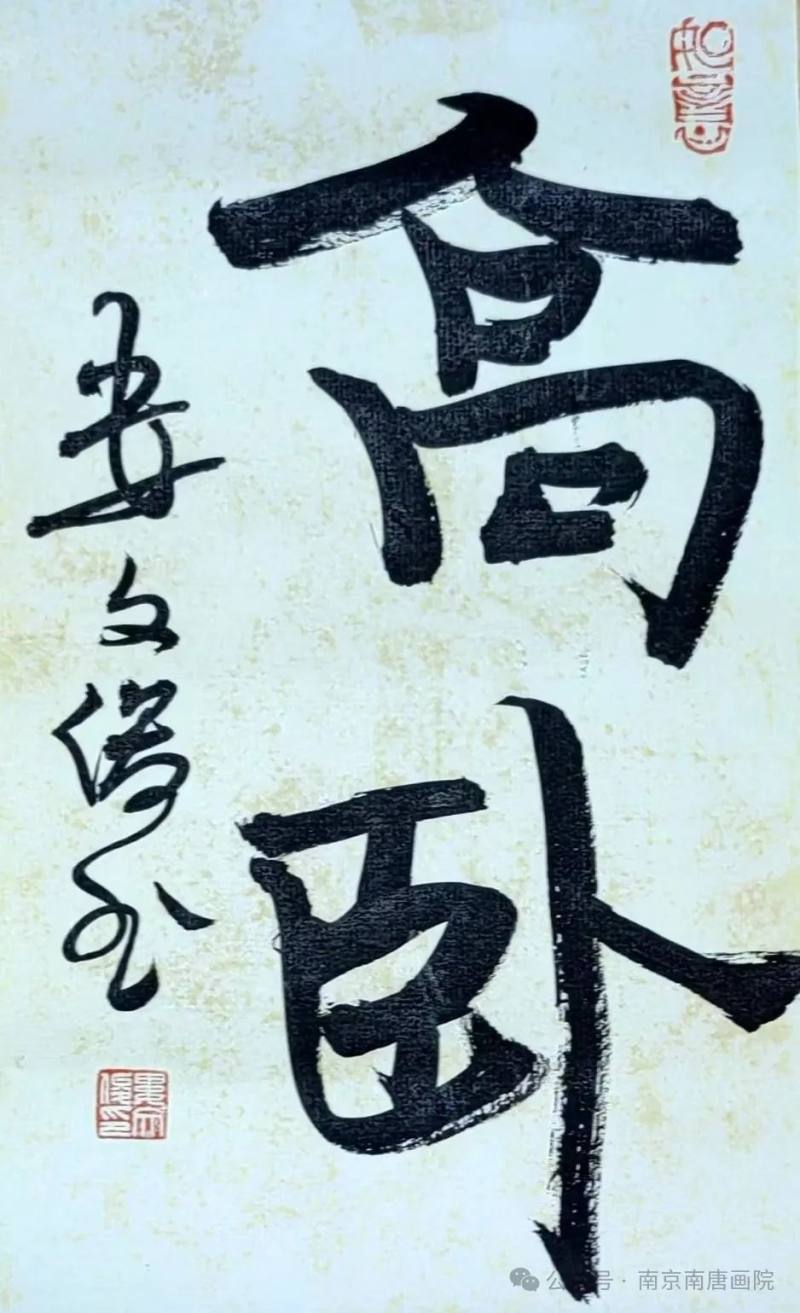 高卧
娄文俊书
公众号 · 南京南唐画院